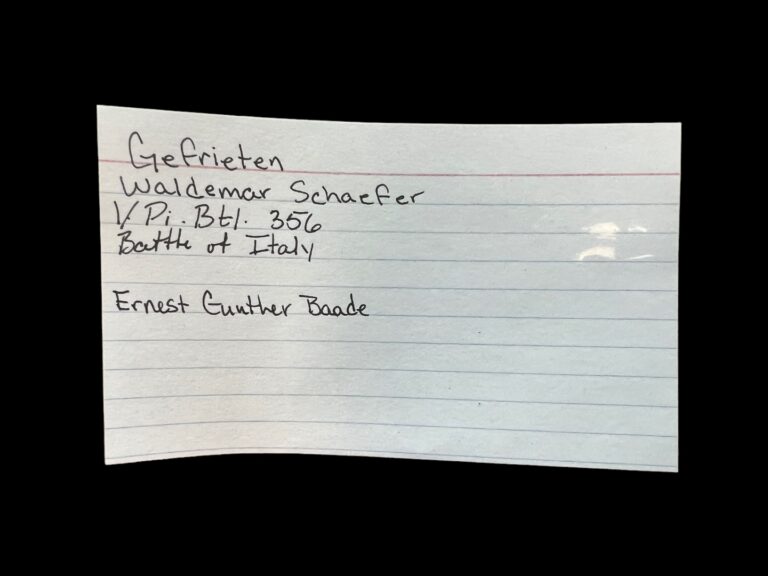 Gefrieten
Waldemar Schaefer
1/ Pi. Btl. 356
Battle of Italy
Ernest Gunther Baade